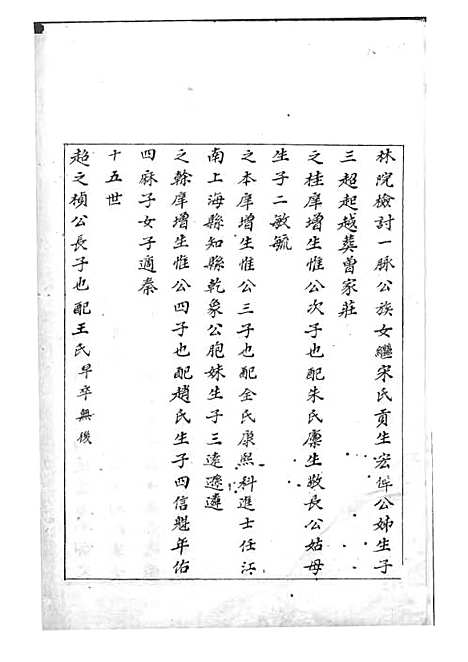 林院檢討一脉公族女繼宋氏貢生宏仵公姊生子
三超起越葬曾家莊
之桂庠增生惟公次子也配朱氏廩生敬長公姑母
生子二敏毓
之本庠增生惟公三子也配金氏康熙科進士任江
南上海縣知縣乾象公胞妹生子三遠遜遴
之幹庠增生惟公四子也配趙氏生子四信魁年佑
四麻子女子適秦
十五世
超之楨公長子也配王氏早卒無後